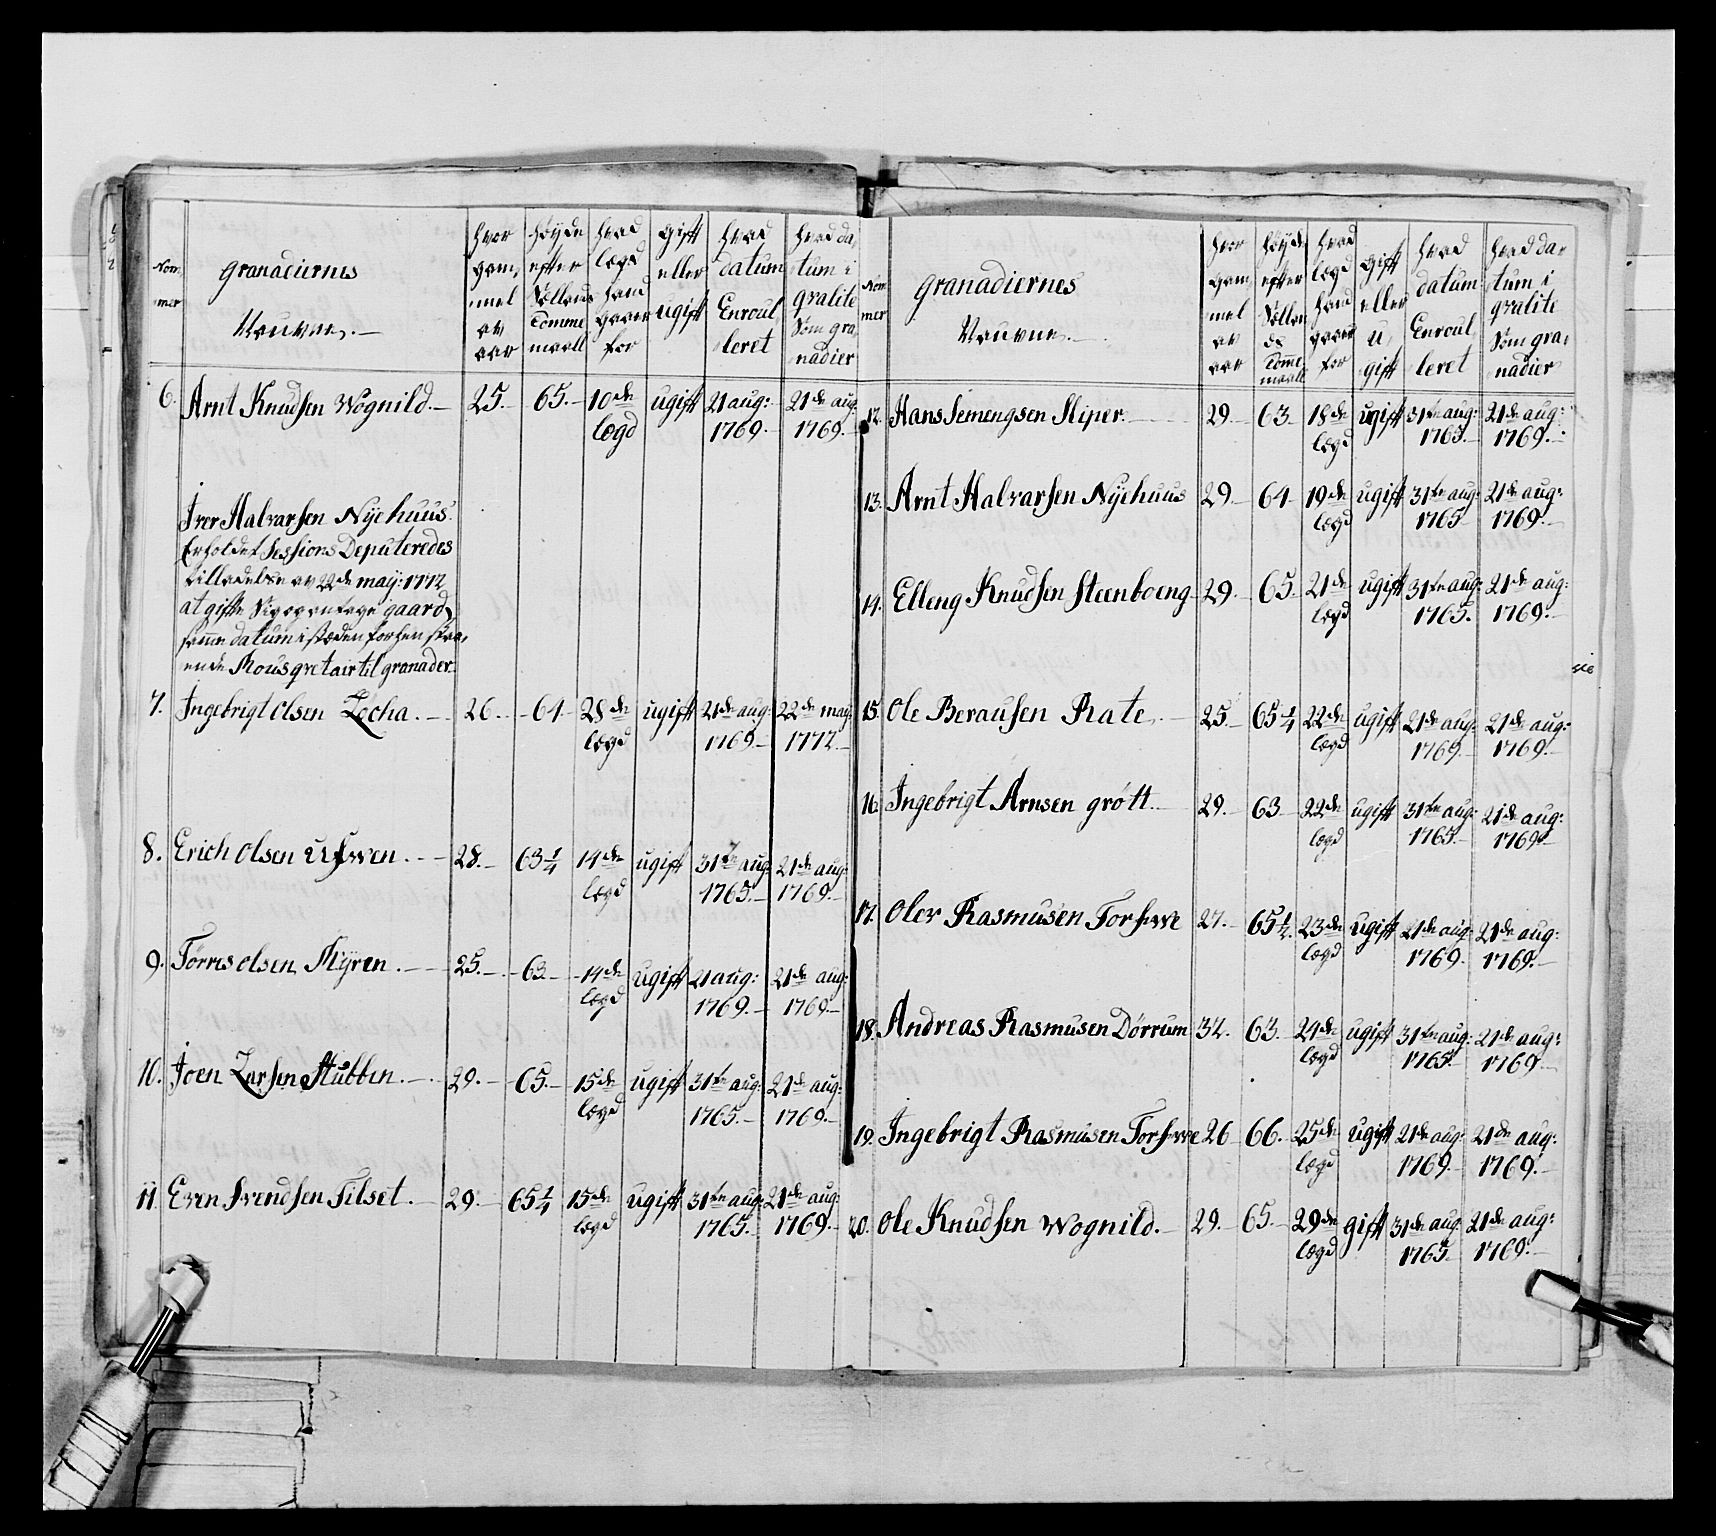 Nom mer
granadiernes
Nauvne.
hvor gam mel av aar
høyde efter Sollens Tomme maall
hvad lægd hand gaaer for
gift eller ugift
hvad datum Enroulleret
hvad datum i qvalite Som granadier
6. Arnt Knudsen Wognild. 25. 65. 10de lægd ugift 21 aug: 1769. 21de aug 1769.
Iver Halvarsen Nyehuus
Erholdet Sessions Deputeredes
tilladelse av 22de may: 1772
at gifte
samme datum i stæden forhen
ende Mousqvetair til granader.
7. Ingebrigt Olsen Locha. 26. 64. 28de lægd ugift 21de aug: 1769. 22de may 1772.
8. Erich Olsen 28. 63 1/4 14de lægd ugift 31te aug: 1765. 21de aug: 1769.
9. Tørres Olsen Myren. 25. 63. 14de lægd ugift 21 aug: 1769. 21de aug: 1769.
10. Joen Larsen Stubben. 29. 65. 15de lægd ugift 31te aug: 1765. 21de aug: 1769.
11. Even Svendsen Tilset. 29. 65 1/4 15de lægd ugift 31te aug: 1765. 21de aug: 1769.
Nom mer
granadiernes
Nauvne.
hvor gam mel av aar
høyde efter Sollen ds Tome maall
hvad lægd hand gaaer for
gift eller u gift
hvad datum Enroulleret
hvad datum i qvalite Som granadier
12. Hans Semengsen Sliper. 29. 63. 18de lægd ugift 31te aug: 1765. 21de aug: 1769.
13. Arnt Halvarsen Nyehuus 29. 64. 19de lægd ugift 31te aug: 1765. 21de aug: 1769.
14. Elleng Knudsen Steenboeng 29. 65. 21de lægd ugift 31te aug: 1765. 21de aug: 1769.
15. Ole Berausen Rate. 25. 65 1/4 22de lægd ugift 21de aug: 1769. 21de aug: 1769.
16. Ingebrigt Arnsen grøtt. 29. 63 22de lægd ugift 31te aug: 1765. 21de aug: 1769.
17. Oler Rasmusen 27. 65 1/2. 23de lægd ugift 21de aug: 1769. 21de aug: 1769.
18. Andreas Rasmusen Dörrum 32. 63. 24de lægd ugift 31te aug: 1765. 21de aug: 1769.
19. Ingebrigt Rasmusen 26 66. 25de lægd ugift 21de aug: 1769. 21de aug: 1769.
20. Ole Knudsen Wognild. 29. 65. 29de lægd gift 31de aug 1765. 21de aug: 1769.